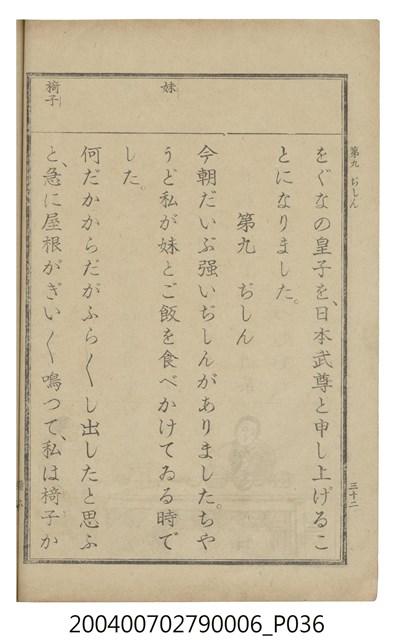 第九 ぢしん
三十二
妹
椅子
をぐなの皇子を、日本武尊と申し上げるこ
とになりました。
第九 ぢしん
今朝だいぶ强いぢしんがありました。ちや
うど私が妹とご飯を食べかけてゐる時で
した。
何だかからだがふら〱し出したと思ふ
と、急に屋根がぎい〱鳴つて、私は椅子か
200400702790006_P036